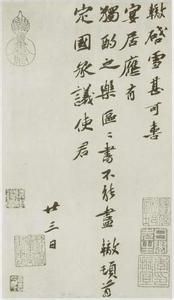 轍啓雪甚可喜
宴居應有
獨酌之樂區區書不能盡轍頓首
定國承議使君
廿三日